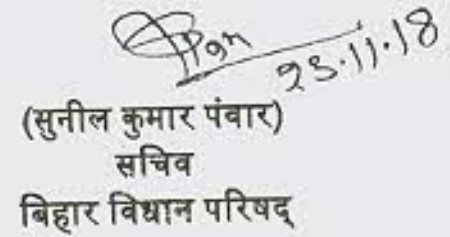 23.11.18
(सुनील कुमार पंवार)
सचिव
बिहार विधान परिषद्